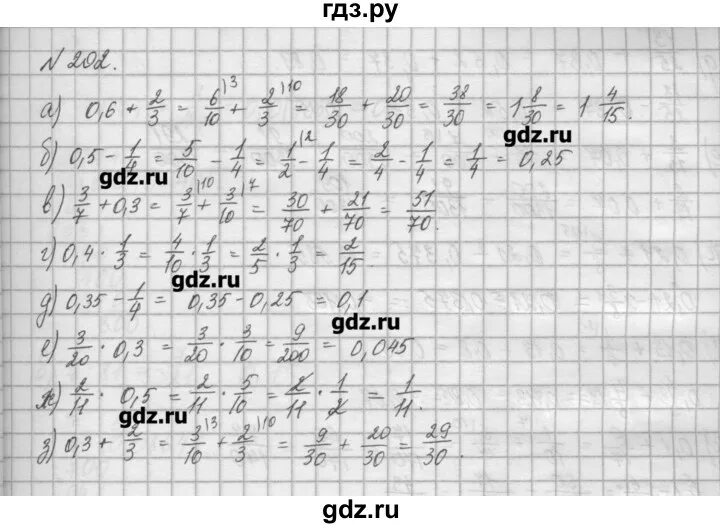 гдз.ру
№ 202.
а) 0,6 + 2/3 = 6/10^{\3} + 2/3^{\10} = 18/30 + 20/30 = 38/30 = 1 8/30 = 1 4/15.
gdz.ru
б) 0,5 - 1/4 = 5/10 - 1/4 = 1/2^{\2} - 1/4 = 2/4 - 1/4 = 1/4 = 0,25
gdz.ru
в) 3/7 + 0,3 = 3/7^{\10} + 3/10^{\7} = 30/70 + 21/70 = 51/70.
г) 0,4 · 1/3 = 4/10 · 1/3 = 2/5 · 1/3 = 2/15.
gdz.ru
д) 0,35 - 1/4 = 0,35 - 0,25 = 0,1
gdz.ru
е) 3/20 · 0,3 = 3/20 · 3/10 = 9/200 = 0,045
ж) 2/11 · 0,5 = 2/11 · 5/10 = 2/11 · 1/2 = 1/11.
gdz.ru
з) 0,3 + 2/3 = 3/10^{\3} + 2/3^{\10} = 9/30 + 20/30 = 29/30.
gdz.ru